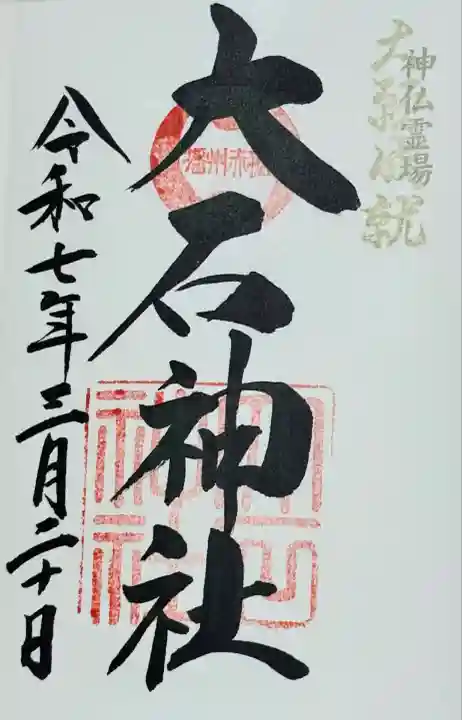 神仏霊場
大願成就
大石神社
播州赤穂
令和七年三月二十日